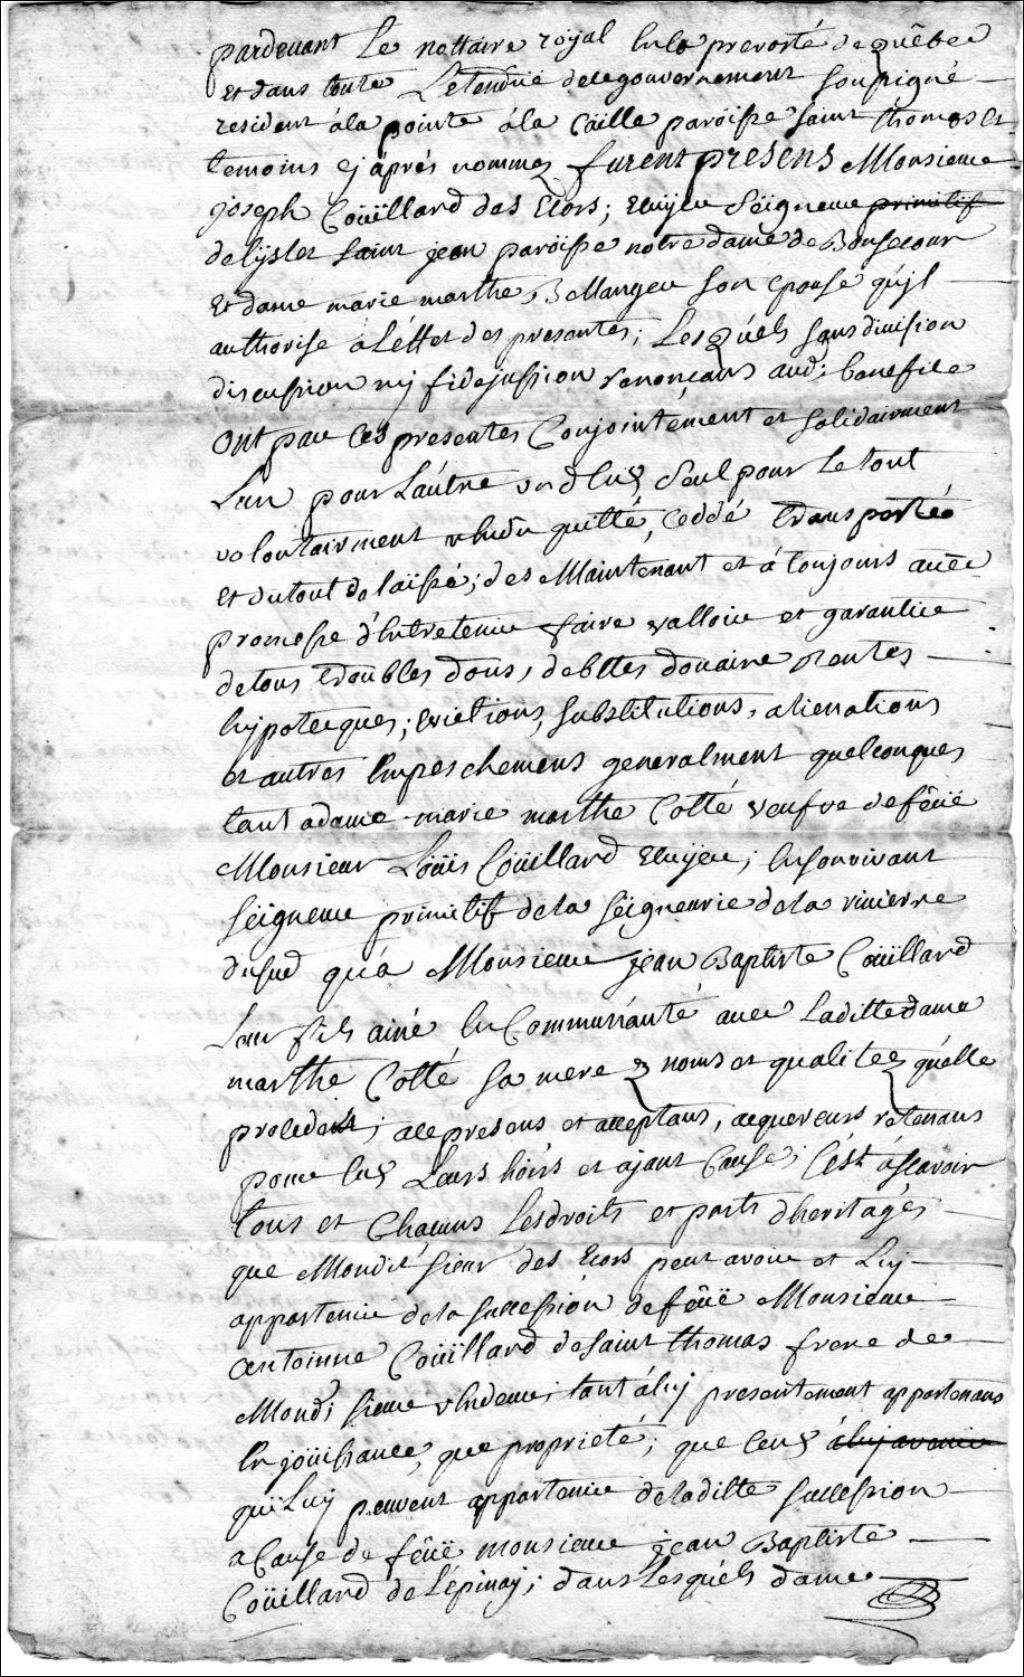 pardevant Le nottaire royal En la prevosté de quêbec
Et dans toute L'etendüe de ce gouvernement Soussigné
resident á la pointe á la Caille paroisse saint thomas Et
temoins cy áprés nommez furent presens Monsieur
joseph Coüillard des Ecors; Ecuyer Seigneur primitif
de l'jslet saint jean paroisse notre dame de Bonsecour
Et dame marie marthe Bellanger son epouse qu'jl
authorise a L'éffet des presentes; Lesquéls sans division
discussion nÿ fidejussion renonçans aud; benefice
ont par Ces presentes Conjointement et solidairment
L'un pour L'áutre un d'Eux Seul pour Le tout
volontairment vendu quitté, Ceddé transporté
Et du tout delaissé; des Maintenant et á toujours avec
promesse d'Entretenir faire valloir et garantire
de tous troübles dons, debttes douaire rentes
hypotecques; Evictions, substitutions, alienations
et autres Empeschemens generalment quelconques
tant a dame marie marthe Cotté veufve de feüe
Monsieur Loüis Coüillard Ecuyer; En son vivant
seigneur primitif de la seigneurie de la rivierre
du sud qu'á Monsieur jean Baptiste Coüillard
Leur fils ainé En Communáuté avec Laditte dame
marthe Cotté sa mere ez noms et qualitez qu'elle
procedent; ace presens et acceptans, acquereurs retenans
pour Eux Leurs hóirs et ajant Cause; C'ést áscavoir
tous et Chacuns Les droits et parts d'heritagés
que Mondit sieur des Ecors peut avoir et Luy
appartenir de la succession de feüe Monsieur
antoinne Coüillard de saint thomas frere de
Mond; sieur vendeur; tant á luy presentement appartenans
En joüissance, que proprieté; que Ceux á luy avenir
qui Luy peuvent appartenir de laditte succession
a Cause de feüe monsieur jean Baptiste
Coüillard de L'épinay; dans Lesquéls dame